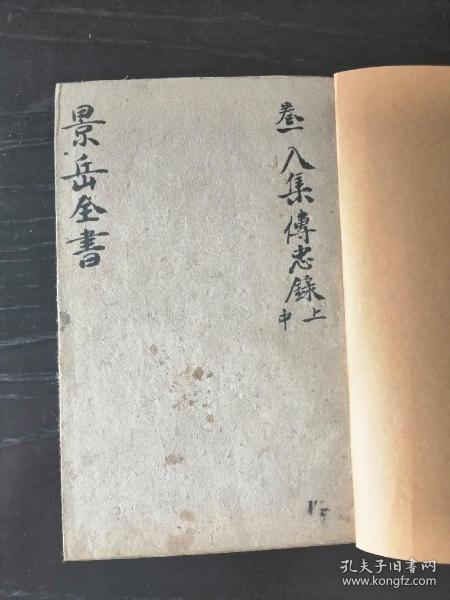 卷一
入集傳忠錄上
中
景岳全書
孔夫子旧书网
www.kongfz.com